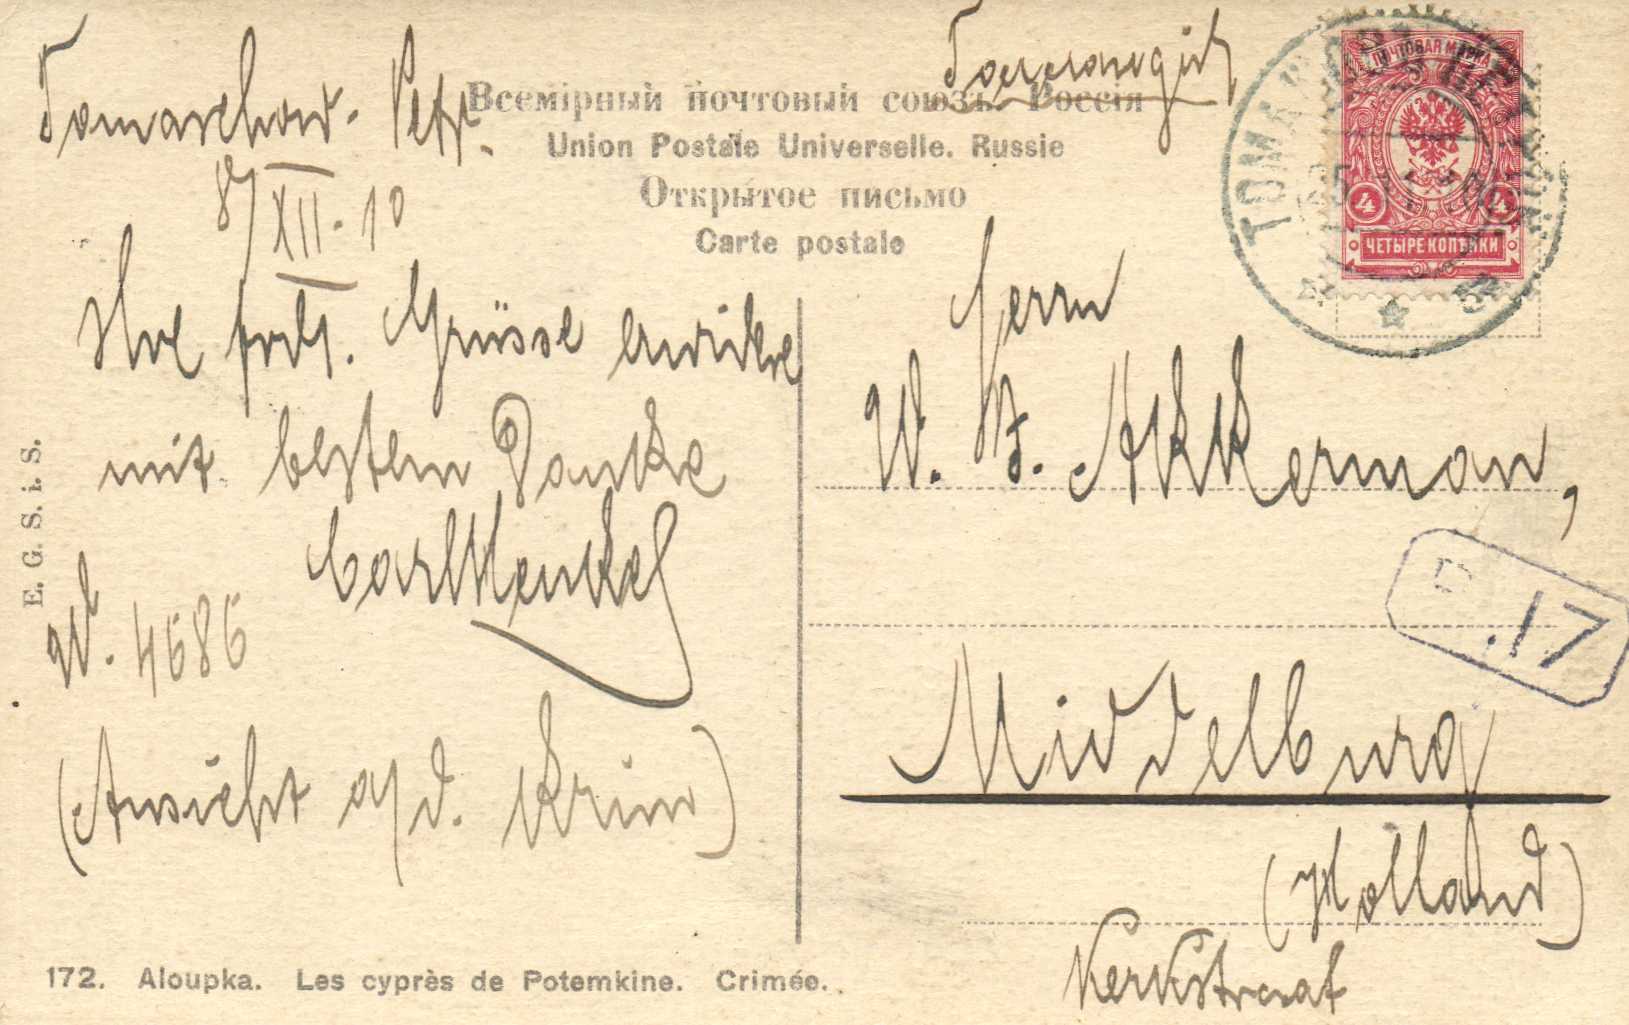 Tomaschow. Petr.
8/XII. 10
Всемірный почтовый союзъ. Россія
Union Postale Universelle. Russie
Открытое письмо
Carte postale
ПОЧТОВАЯ МАРКА
4 4
ЧЕТЫРЕ КОПѢЙКИ
ТОМА
Ihre frdl. Grüsse erwidere
mit bestem Danke
Carl Henkel
W. 4686
(Ansicht a/d. Krim)
E. G. S. i. S.
Herrn
W. Akkerman,
17
Middelburg
(Holland)
Kerkstraat
172. Aloupka. Les cyprès de Potemkine. Crimée.